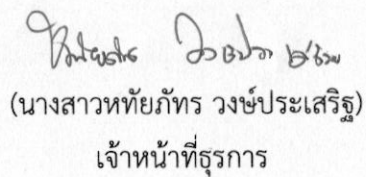 (นางสาวหทัยภัทร วงษ์ประเสริฐ)
เจ้าหน้าที่ธุรการ